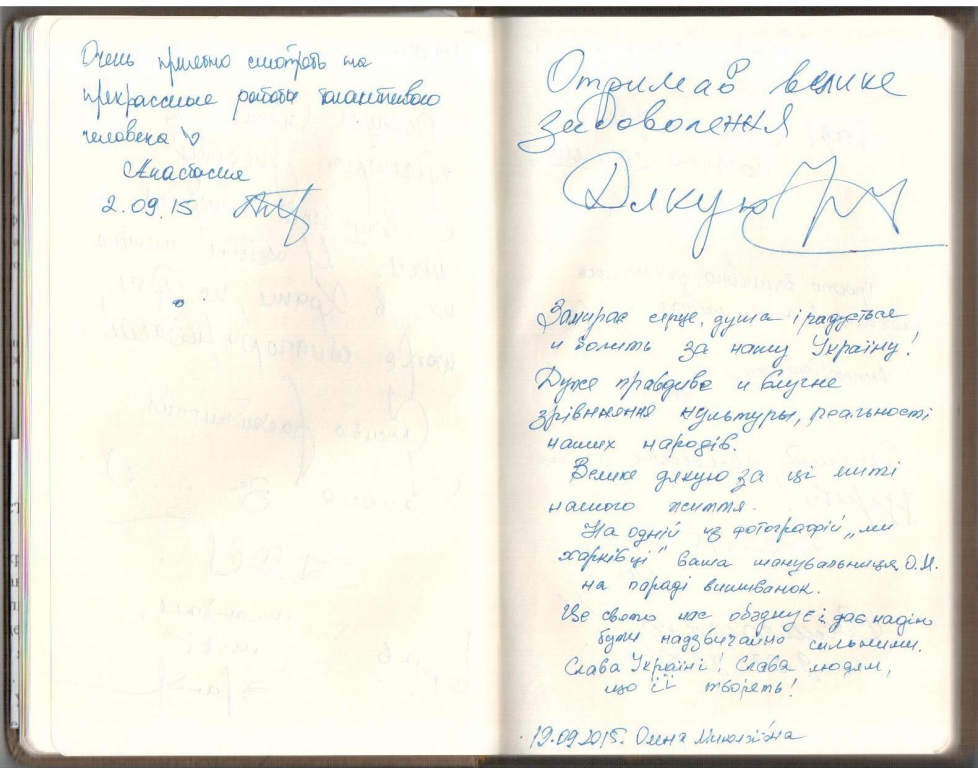 Очень приятно смотреть на
прекрасные работы талантливого
человека
Анастасия
2.09.15
Отримав велике
задоволення
Дякую
Замирає серце, душа і радується
и болить за нашу Україну!
Дуже правдиве и влучне
зрівняння культуры, реальності
наших народів.
Велике дякую за ці миті
нашого життя.
На одній из фотографій „ми
харківці" ваша шанувальниця О.М.
на параді вишиванок.
Це свято нас обєднує і дає надію
бути надзвичайно сильними.
Слава Україні! Слава людям,
що її творять!
19.09.2015. Олена Миколаївна